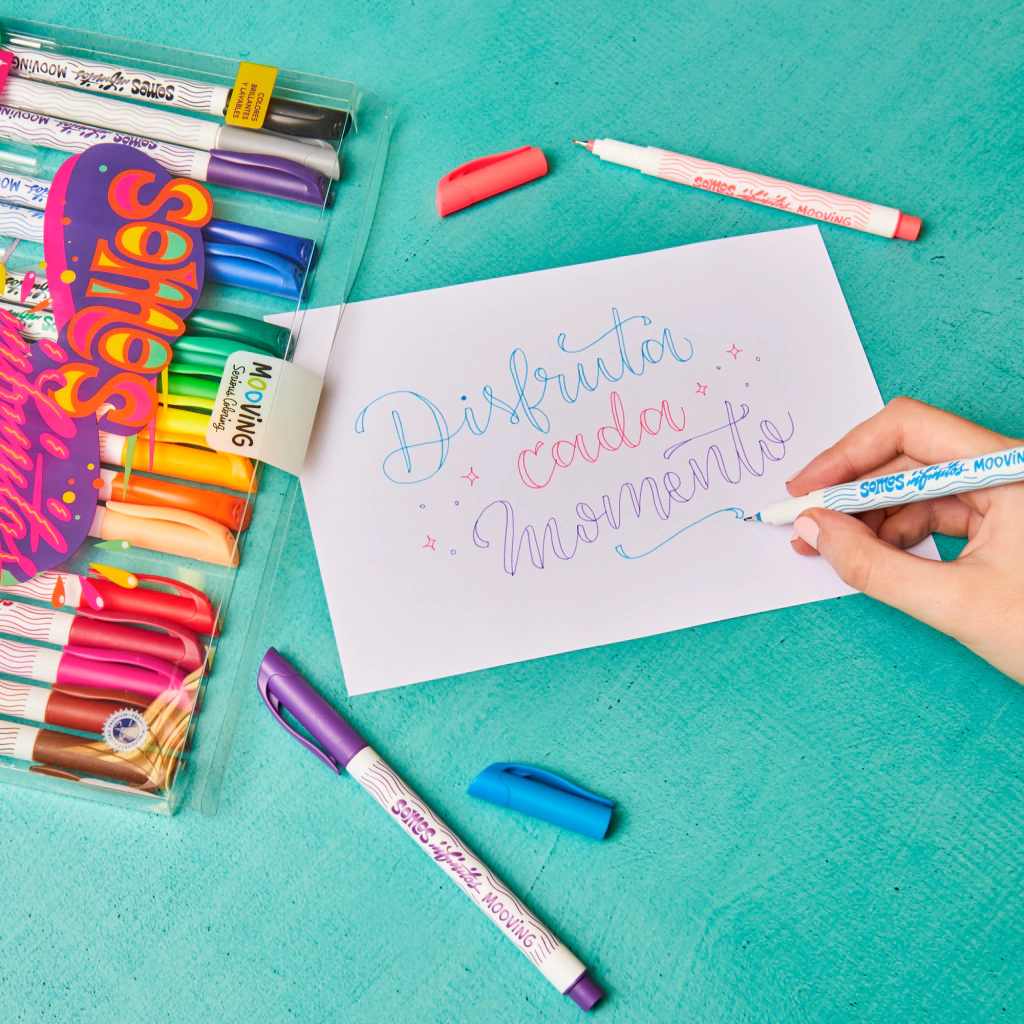 somos infinitos MOOVING
COLORES
BRILLANTES
Y LAVABLES
somos infinitos MOOVING
somos
MOOVING
Serious Coloring.
somos infinitos MOOVING
Disfruta
cada
Momento
somos infinitos MOOVING
somos infinitos MOOVING